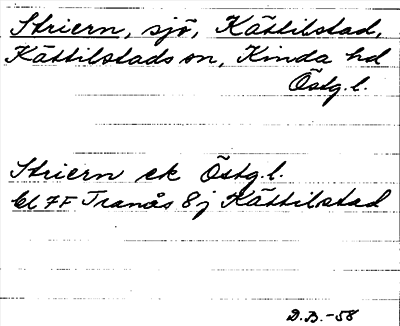 Striern, sjö, Kättilstad,
Kättilstads sn, Kinda hd
Östg. l.
Striern ek Östg. l.
bl 7F Tranås 8j Kättilstad
D.B.-58